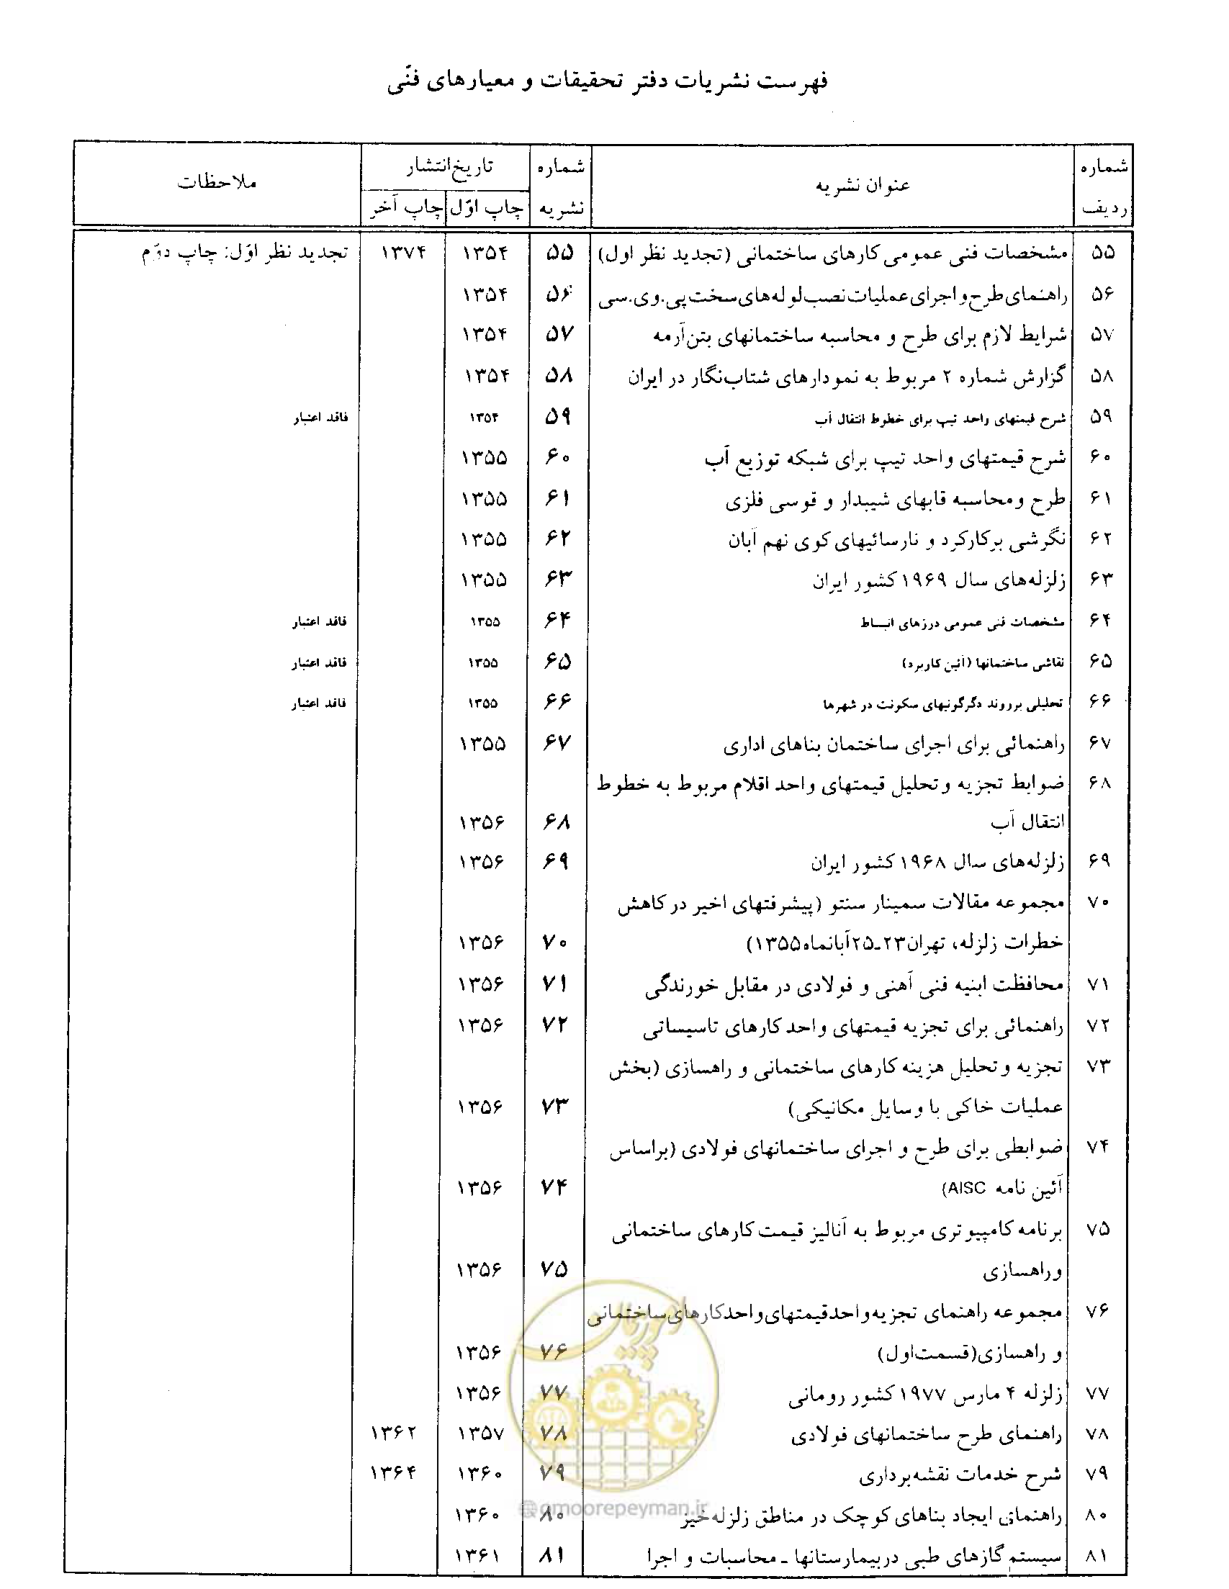 فهرست نشریات دفتر تحقیقات و معیارهای فنّی
شماره ردیف | عنوان نشریه | شماره نشریه | تاریخ انتشار چاپ اوّل | چاپ آخر | ملاحظات
۵۵ مشخصات فنی عمومی کارهای ساختمانی (تجدید نظر اول) ۵۵ ۱۳۵۴ ۱۳۷۴ تجدید نظر اوّل: چاپ دوّم
۵۶ راهنمای طرح و اجرای عملیات نصب لوله‌های سخت پی.وی.سی ۵۶ ۱۳۵۴
۵۷ شرایط لازم برای طرح و محاسبه ساختمانهای بتن‌آرمه ۵۷ ۱۳۵۴
۵۸ گزارش شماره ۲ مربوط به نمودارهای شتاب‌نگار در ایران ۵۸ ۱۳۵۴
۵۹ شرح قیمتهای واحد تیپ برای خطوط انتقال آب ۵۹ ۱۳۵۴ فاقد اعتبار
۶۰ شرح قیمتهای واحد تیپ برای شبکه توزیع آب ۶۰ ۱۳۵۵
۶۱ طرح ومحاسبه قابهای شیبدار و قوسی فلزی ۶۱ ۱۳۵۵
۶۲ نگرشی برکارکرد و نارسائیهای کوی نهم آبان ۶۲ ۱۳۵۵
۶۳ زلزله‌های سال ۱۹۶۹ کشور ایران ۶۳ ۱۳۵۵
۶۴ مشخصات فنی عمومی درزهای انبساط ۶۴ ۱۳۵۵ فاقد اعتبار
۶۵ نقاشی ساختمانها (آئین کاربرد) ۶۵ ۱۳۵۵ فاقد اعتبار
۶۶ تحلیلی برروند دگرگونیهای سکونت در شهرها ۶۶ ۱۳۵۵ فاقد اعتبار
۶۷ راهنمائی برای اجرای ساختمان بناهای اداری ۶۷ ۱۳۵۵
۶۸ ضوابط تجزیه و تحلیل قیمتهای واحد اقلام مربوط به خطوط
انتقال آب ۶۸ ۱۳۵۶
۶۹ زلزله‌های سال ۱۹۶۸ کشور ایران ۶۹ ۱۳۵۶
۷۰ مجموعه مقالات سمینار سنتو (پیشرفتهای اخیر در کاهش
خطرات زلزله، تهران ۲۳ـ۲۵ آبانماه ۱۳۵۵) ۷۰ ۱۳۵۶
۷۱ محافظت ابنیه فنی آهنی و فولادی در مقابل خورندگی ۷۱ ۱۳۵۶
۷۲ راهنمائی برای تجزیه قیمتهای واحد کارهای تاسیساتی ۷۲ ۱۳۵۶
۷۳ تجزیه و تحلیل هزینه کارهای ساختمانی و راهسازی (بخش
عملیات خاکی با وسایل مکانیکی) ۷۳ ۱۳۵۶
۷۴ ضوابطی برای طرح و اجرای ساختمانهای فولادی (براساس
آئین نامه AISC) ۷۴ ۱۳۵۶
۷۵ برنامه کامپیوتری مربوط به آنالیز قیمت کارهای ساختمانی
وراهسازی ۷۵ ۱۳۵۶
۷۶ مجموعه راهنمای تجزیه واحدقیمتهای واحدکارهای ساختمانی
و راهسازی(قسمت اول) ۷۶ ۱۳۵۶
۷۷ زلزله ۴ مارس ۱۹۷۷ کشور رومانی ۷۷ ۱۳۵۶
۷۸ راهنمای طرح ساختمانهای فولادی ۷۸ ۱۳۵۷ ۱۳۶۲
۷۹ شرح خدمات نقشه‌برداری ۷۹ ۱۳۶۰ ۱۳۶۴
۸۰ راهنمای ایجاد بناهای کوچک در مناطق زلزله‌خیز ۸۰ ۱۳۶۰
۸۱ سیستم گازهای طبی دربیمارستانها ـ محاسبات و اجرا ۸۱ ۱۳۶۱
امور پیمان
omoorepeyman.ir